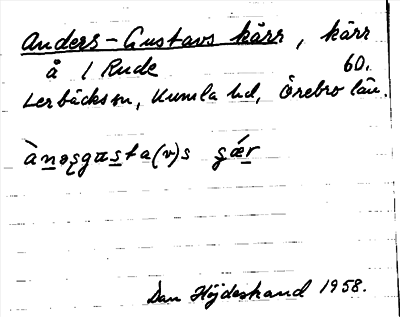 Anders-Gustavs kärr, kärr
å 1 Rude 60.
Lerbäcks sn, Kumla hd, Örebro län.
ànəsgusta(v)s
Dan Höjdestrand 1958.